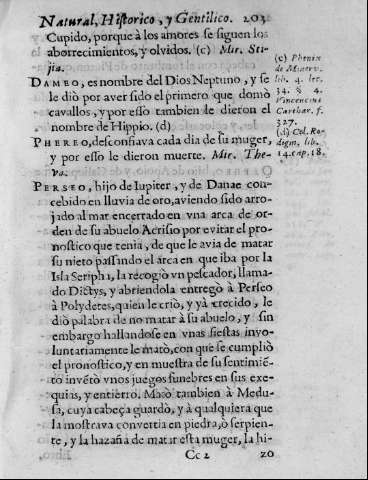 Natural, Historico, y Gentilico. 203
Cupido, porque à los amores se siguen los
aborrecimientos, y olvidos. (c) Mir. Sti-
jia.
DAMEO, es nombre del Dios Neptuno, y se
le diò por aver sido el primero que domò
cavallos, y por esso tambien le dieron el
nombre de Hippio. (d)
PHEREO, desconfiava cada dia de su muger,
y por esso le dieron muerte. Mir. The-
va.
PERSEO, hijo de Iupiter, y de Danae con-
cebido en lluvia de oro, aviendo sido arro-
jado al mar encerrado en vna arca de or-
den de su abuelo Acrisio por evitar el pro-
nostico que tenia, de que le avia de matar
su nieto passando el arca en que iba por la
Isla Seriphi, la recogiò vn pescador, llama-
do Dictys, y abriendola entregò à Perseo
à Polydetes, quien le criò, y yà crecido, le
diò palabra de no matar à su abuelo, y sin
embargo hallandose en vnas fiestas invo-
luntariamente le matò, con que se cumpliò
el pronostico, y en muestra de su sentimiē-
to invētò vnos juegos funebres en sus exe-
quias, y entierro. Matò tambien à Medu-
sa, cuya cabeça guardò, y à qualquiera que
la mostrava convertia en piedra, ò serpien-
te, y la hazaña de matar esta muger, la hi-
Cc 2 zo
(c) Phenix
de Minerv.
lib. 4. lec.
34. § 4.
Vincencius
Carthar. f.
327.
(d) Cel. Ro-
digin, lib.
14. cap. 18.